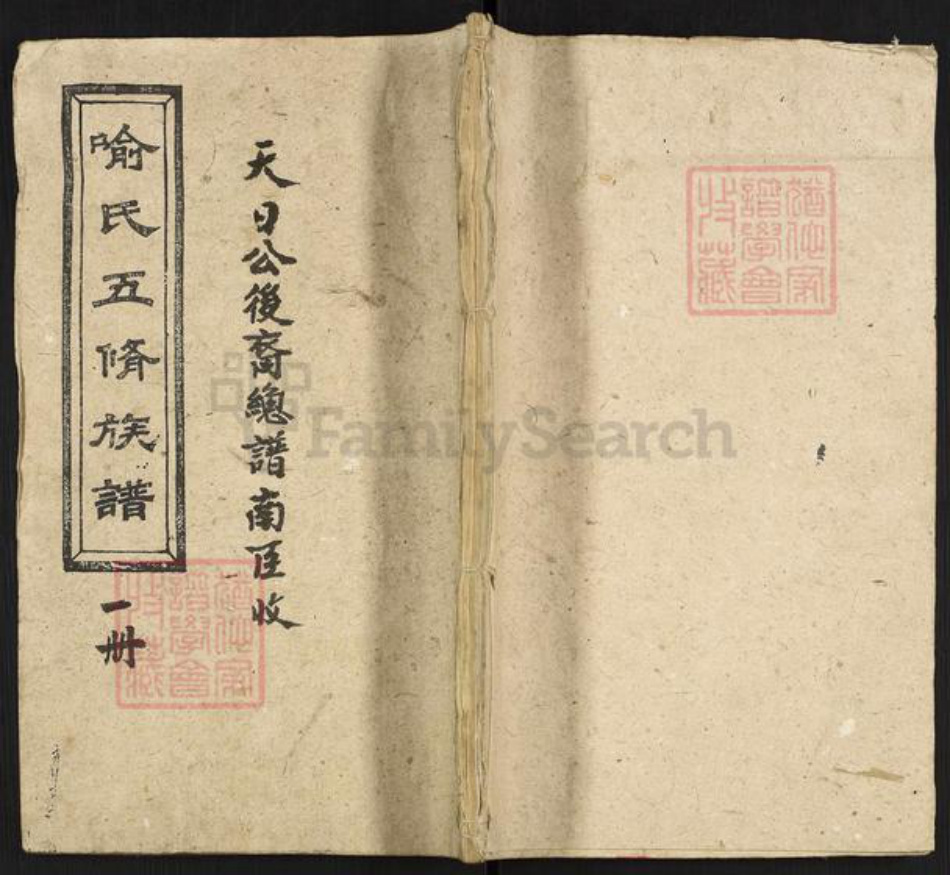 喻氏五脩族譜
一册
天日公後裔總譜南匡收
猶他家
譜學會
收藏
猶他家
譜學會
收藏
FamilySearch